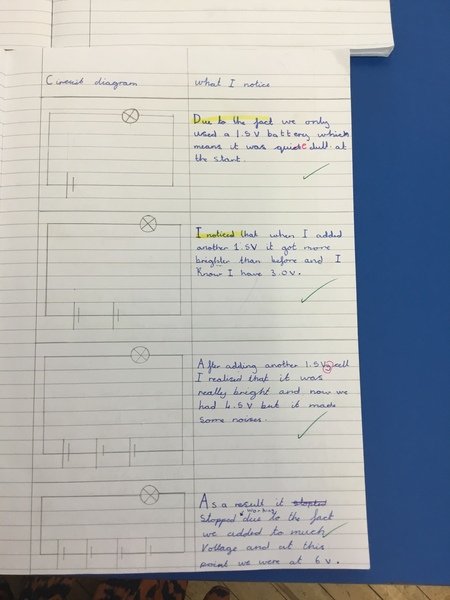 Circuit diagram
what I notice
Due to the fact we only
used a 1.5V battery which
means it was quite dull at
the start.
I noticed that when I added
another 1.5V it got more
brighter than before and I
Know I have 3.0V.
After adding another 1.5V cell
I realised that it was
really bright and now we
had 4.5V but it made
some noises.
As a result it stopted
stopped working due to the fact
we added to much
Voltage and at this
point we were at 6v.